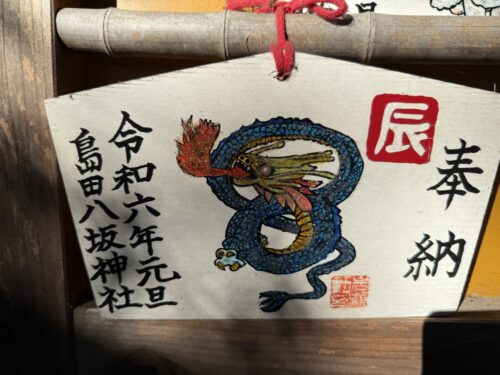 奉納
辰
令和六年元旦
島田八坂神社